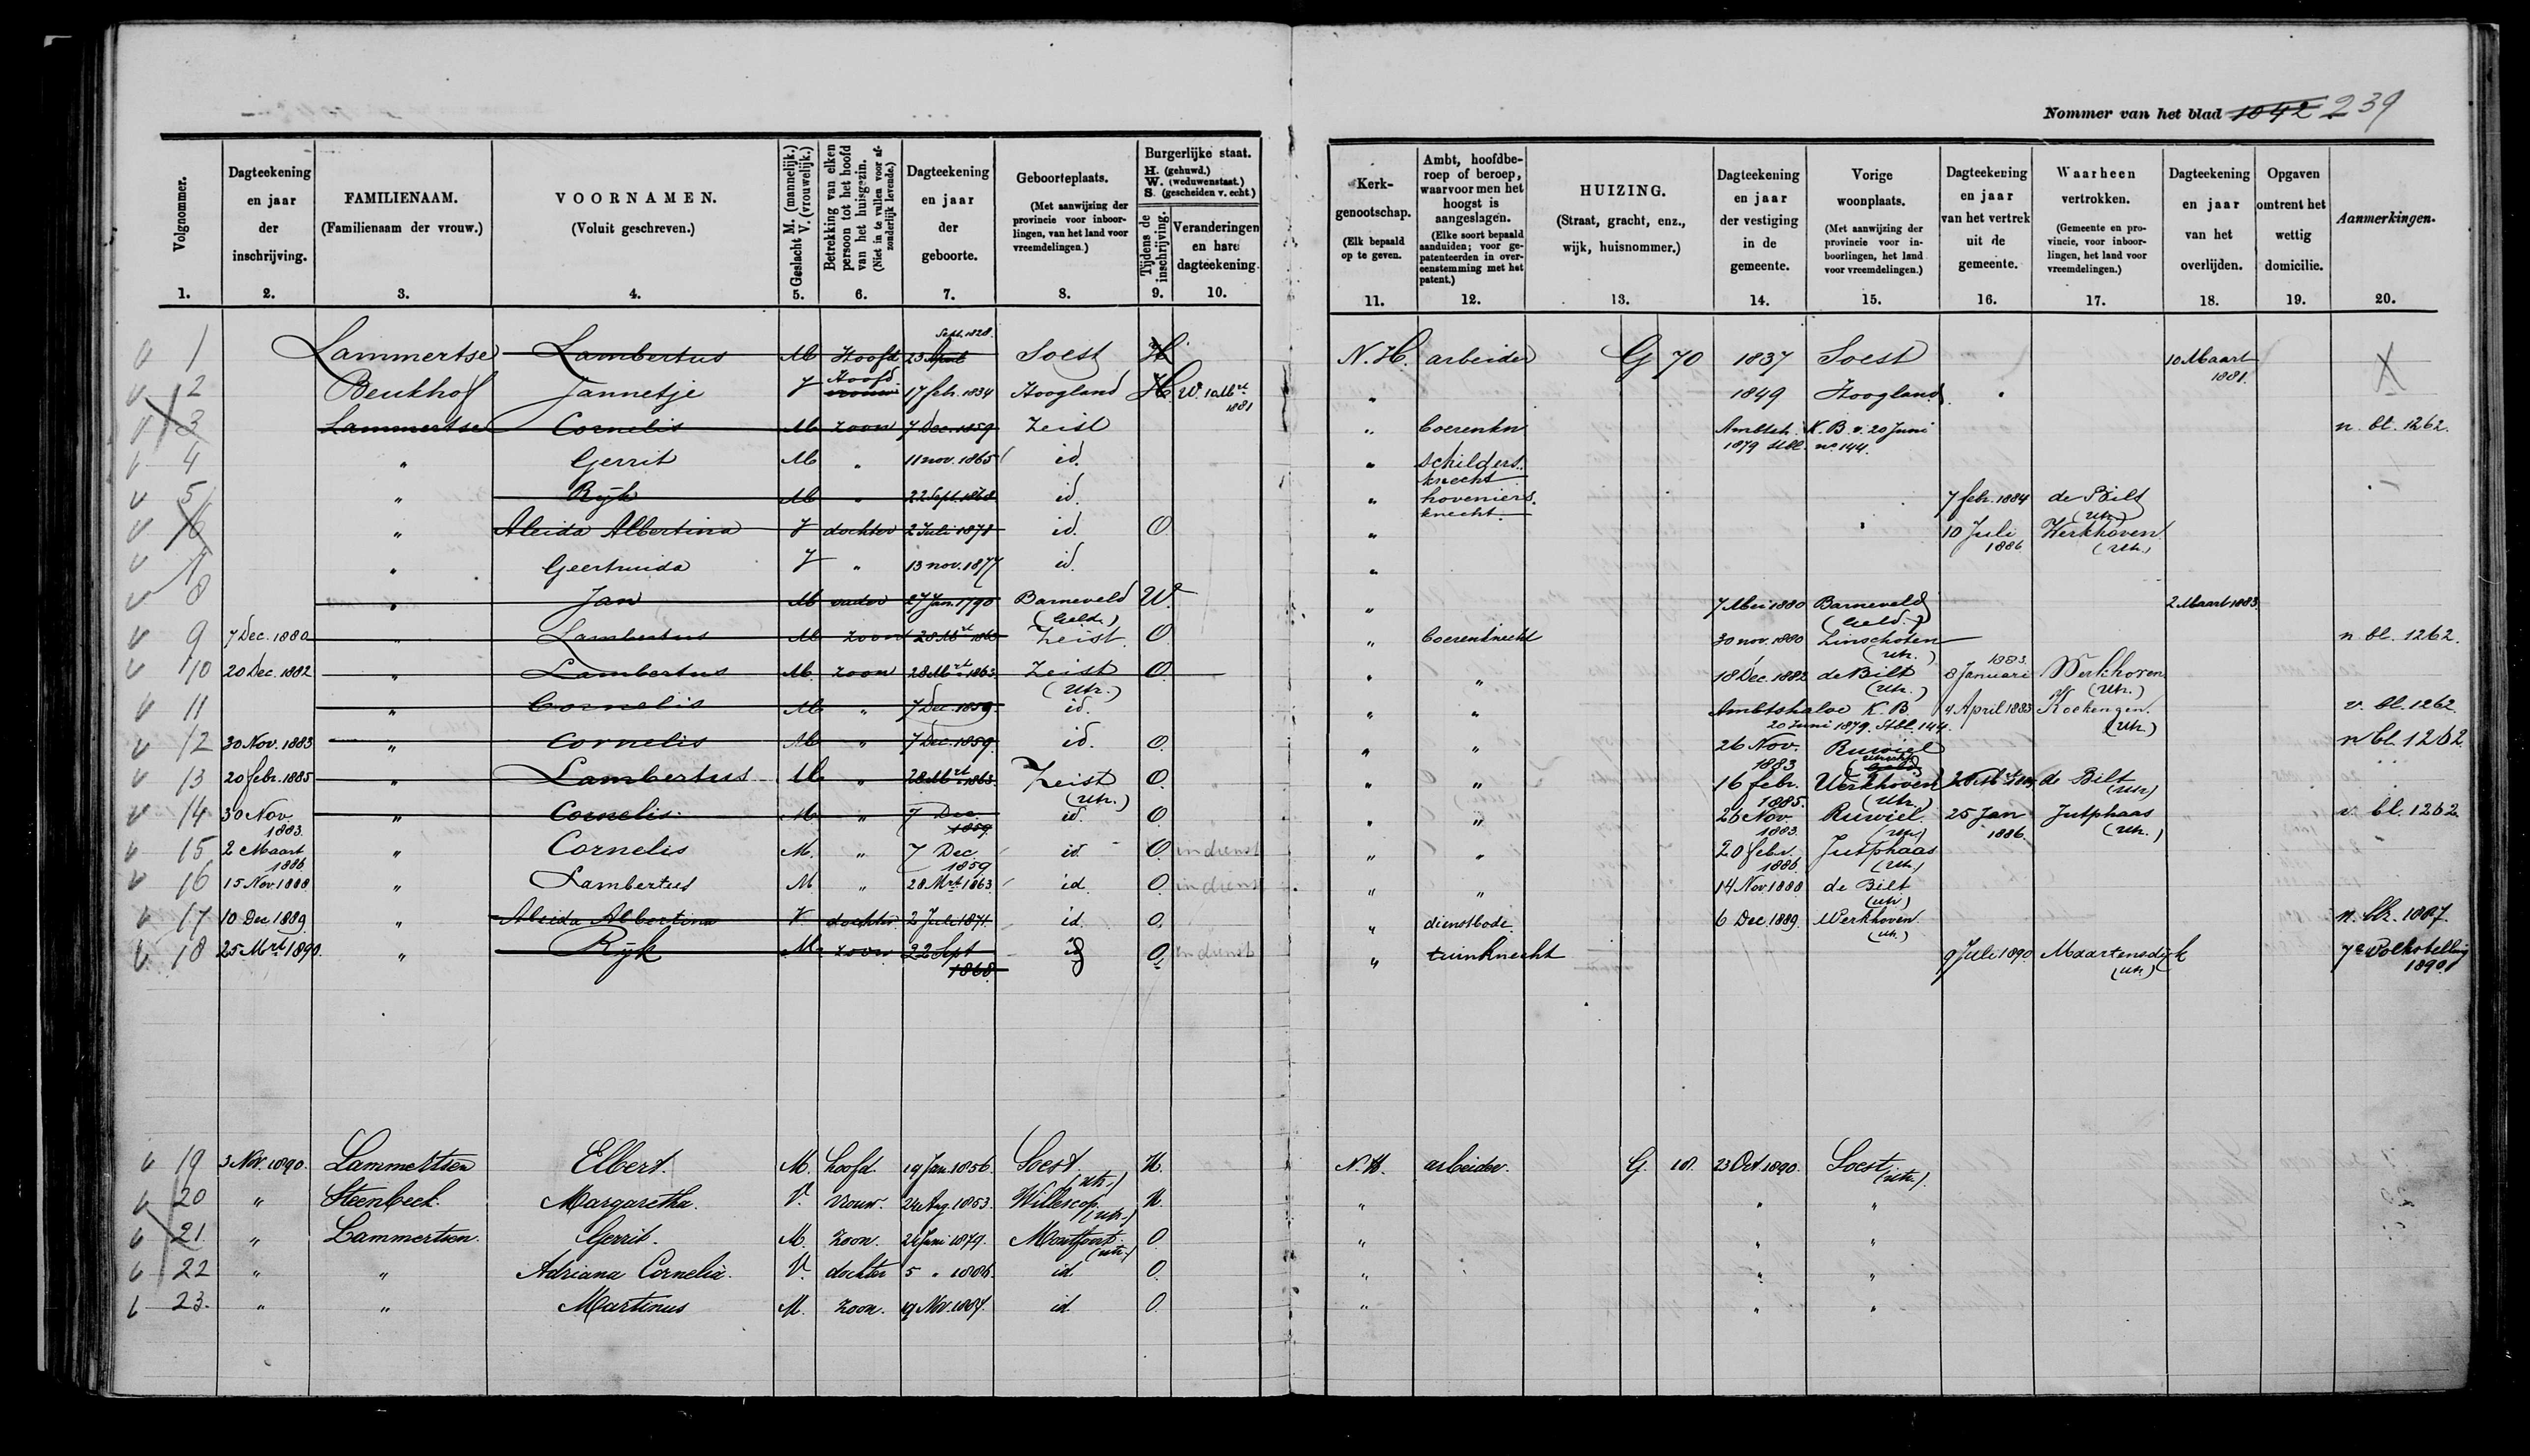 Nommer van het blad 1042 239
Volgnommer. 1.
Dagteekening en jaar der inschrijving. 2.
FAMILIENAAM. (Familienaam der vrouw.) 3.
VOORNAMEN. (Voluit geschreven.) 4.
Geslacht M. (mannelijk.) V. (vrouwelijk.) 5.
Betrekking van elken persoon tot het hoofd van het huisgezin. (Niet in te vullen voor afzonderlijk levende.) 6.
Dagteekening en jaar der geboorte. 7.
Geboorteplaats. (Met aanwijzing der provincie voor inboorlingen, van het land voor vreemdelingen.) 8.
Burgerlijke staat. H. (gehuwd.) W. (weduwenstaat.) S. (gescheiden v. echt.)
Tijdens de inschrijving. 9.
Veranderingen en hare dagteekening. 10.
Kerkgenootschap. (Elk bepaald op te geven.) 11.
Ambt, hoofdberoep of beroep, waarvoor men het hoogst is aangeslagen. (Elke soort bepaald aanduiden; voor gepatenteerden in overeenstemming met het patent.) 12.
HUIZING. (Straat, gracht, enz., wijk, huisnommer.) 13.
Dagteekening en jaar der vestiging in de gemeente. 14.
Vorige woonplaats. (Met aanwijzing der provincie voor inboorlingen, het land voor vreemdelingen.) 15.
Dagteekening en jaar van het vertrek uit de gemeente. 16.
Waarheen vertrokken. (Gemeente en provincie, voor inboorlingen, het land voor vreemdelingen.) 17.
Dagteekening en jaar van het overlijden. 18.
Opgaven omtrent het wettig domicilie. 19.
Aanmerkingen. 20.
1 Lammertse Lambertus M Hoofd 23 April Sept. 1828 Soest H N.H. arbeider G 70 1837 Soest 10 Maart 1881. X
2 Beukhof Jannetje V vrouw Hoofd 17 feb. 1834 Hoogland H W. 10 Mrt 1881 " 1849 Hoogland
3 Lammertse Cornelis M zoon 7 Dec. 1859 Zeist " boerenkn Ambtsh. K.B. v. 20 Juni 1879 Stbl. no 144. n. bl. 1262.
4 " Gerrit M " 11 nov. 1865 id. " schilders knecht
5 " Rijk M " 22 Sept. 1868 id. " hoveniers knecht. 7 feb. 1884 de Bilt (Utr.)
6 " Aleida Albertina V dochter 2 Juli 1871 id. O " 10 Juli 1886 Werkhoven (Utr.)
7 " Geertruida V " 13 nov. 1877 id. "
8 " Jan M vader 27 Jan. 1790 Barneveld (Geld.) W. " 7 Mei 1880 Barneveld (Geld.) 2 Maart 1883
9 7 Dec. 1880 " Lambertus M zoon 28 Mrt 1863 Zeist. O " boerenknecht 30 nov. 1880 Linschoten (Utr.) n bl. 1262.
10 20 Dec. 1882 " Lambertus M. zoon 28 Mrt 1863. Zeist (Utr.) O " " 18 Dec. 1882 de Bilt (Utr.) 8 Januari 1883. Werkhoven (Utr.)
11 " Cornelis M " 7 Dec. 1859. id. " " Ambtshalve K.B 20 Juni 1879. Stbl. 144. 4 April 1883 Kockengen. (Utr.) v. bl. 1262.
12 30 Nov. 1883 " Cornelis M " 7 Dec. 1859. id. O. " " 26 Nov. 1883 Ruwiel (Utrecht) n bl. 1262.
13 20 febr. 1885 " Lambertus M " 28 Mrt 1863. Zeist (Utr.) O. " " 16 febr. 1885. Werkhoven (Utr.) de Bilt (Utr)
14 30 Nov. 1883. " Cornelis M " 7 Dec. 1859 id. O. " " 26 Nov. 1883. Ruwiel. (Utr.) 25 Jan 1886. Jutphaas (Utr.) v. bl. 1262.
15 2 Maart 1886 " Cornelis M. " 7 Dec. 1859 id. O. in dienst " " 20 febr. 1886. Jutphaas (Utr.)
16 15 Nov. 1888 " Lambertus M " 28 Mrt 1863. id. O. in dienst " " 14 Nov. 1888 de Bilt (Utr)
17 10 Dec 1889 " Aleida Albertina V dochter 2 Juli 1871. id. O. " dienstbode. 6 Dec. 1889. Werkhoven. (Utr.) n. bl. 1887.
18 25 Mrt 1890. " Rijk M zoon 22 Sept 1868. id O. in dienst " tuinknecht 9 Juli 1890 Maartensdijk (Utr) 7e Volkstelling 1890
19 3 Nov. 1890. Lammertsen Elbert. M. hoofd. 19 Jan. 1856. Soest. (Utr.) H. N.H. arbeider. G. 18. 23 Oct 1890. Soest (Utr.).
20 " Steenbeek. Margaretha. V. vrouw. 24 Aug. 1853. Willescop. (Utr.) H. " " "
21 " Lammertsen. Gerrit. M. zoon. 21 Juni 1879. Montfoort. (Utr.) O. " " "
22 " " Adriana Cornelia. V. dochter 5 " 1886. id. O. " " "
23. " " Martinus M. zoon. 19 Nov. 1884. id. O. " " "